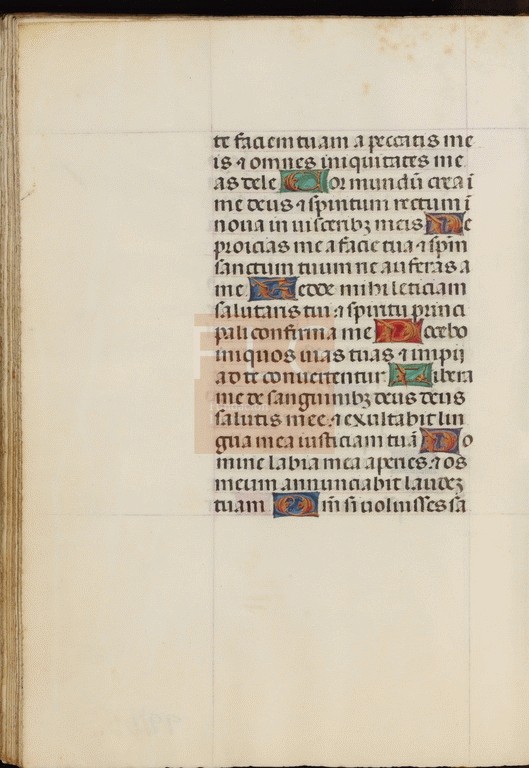 te faciem tuam a peccatis me
is ⁊ omnes iniquitates me
as dele Cor mundū crea ī
me deus ⁊ spiritum rectum ī
noua in uisceribꝫ meis Ne
proicias me a facie tua ⁊ spm̄
sanctum tuum ne auferas a
me Redde mihi leticiam
salutaris tui ⁊ spiritu princi
pali confirma me Docebo
iniquos uias tuas ⁊ impij
ad te conuertentur Libera
me de sanguinibꝫ deus deus
salutis mee ⁊ exultabit lin
gua mea iusticiam tuā Do
mine labia mea aperies ⁊ os
meum annunciabit laudeꝫ
tuam Qm̄ si uoluisses sa